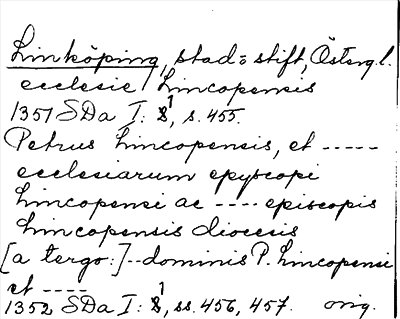 Linköping, stad o stift, Östergl.
ecclesie Lincopensis
1357 SDa I: 1, s. 455.
Petrus Lincopensis, et -----
ecclesiarum epyscopi
Lincopensi ac ---- episcopis
Lincopensis diocesis
[a tergo:]--dominis P. Lincopensi
et ----
1352 SDa I: 1, ss. 456, 457. orig.